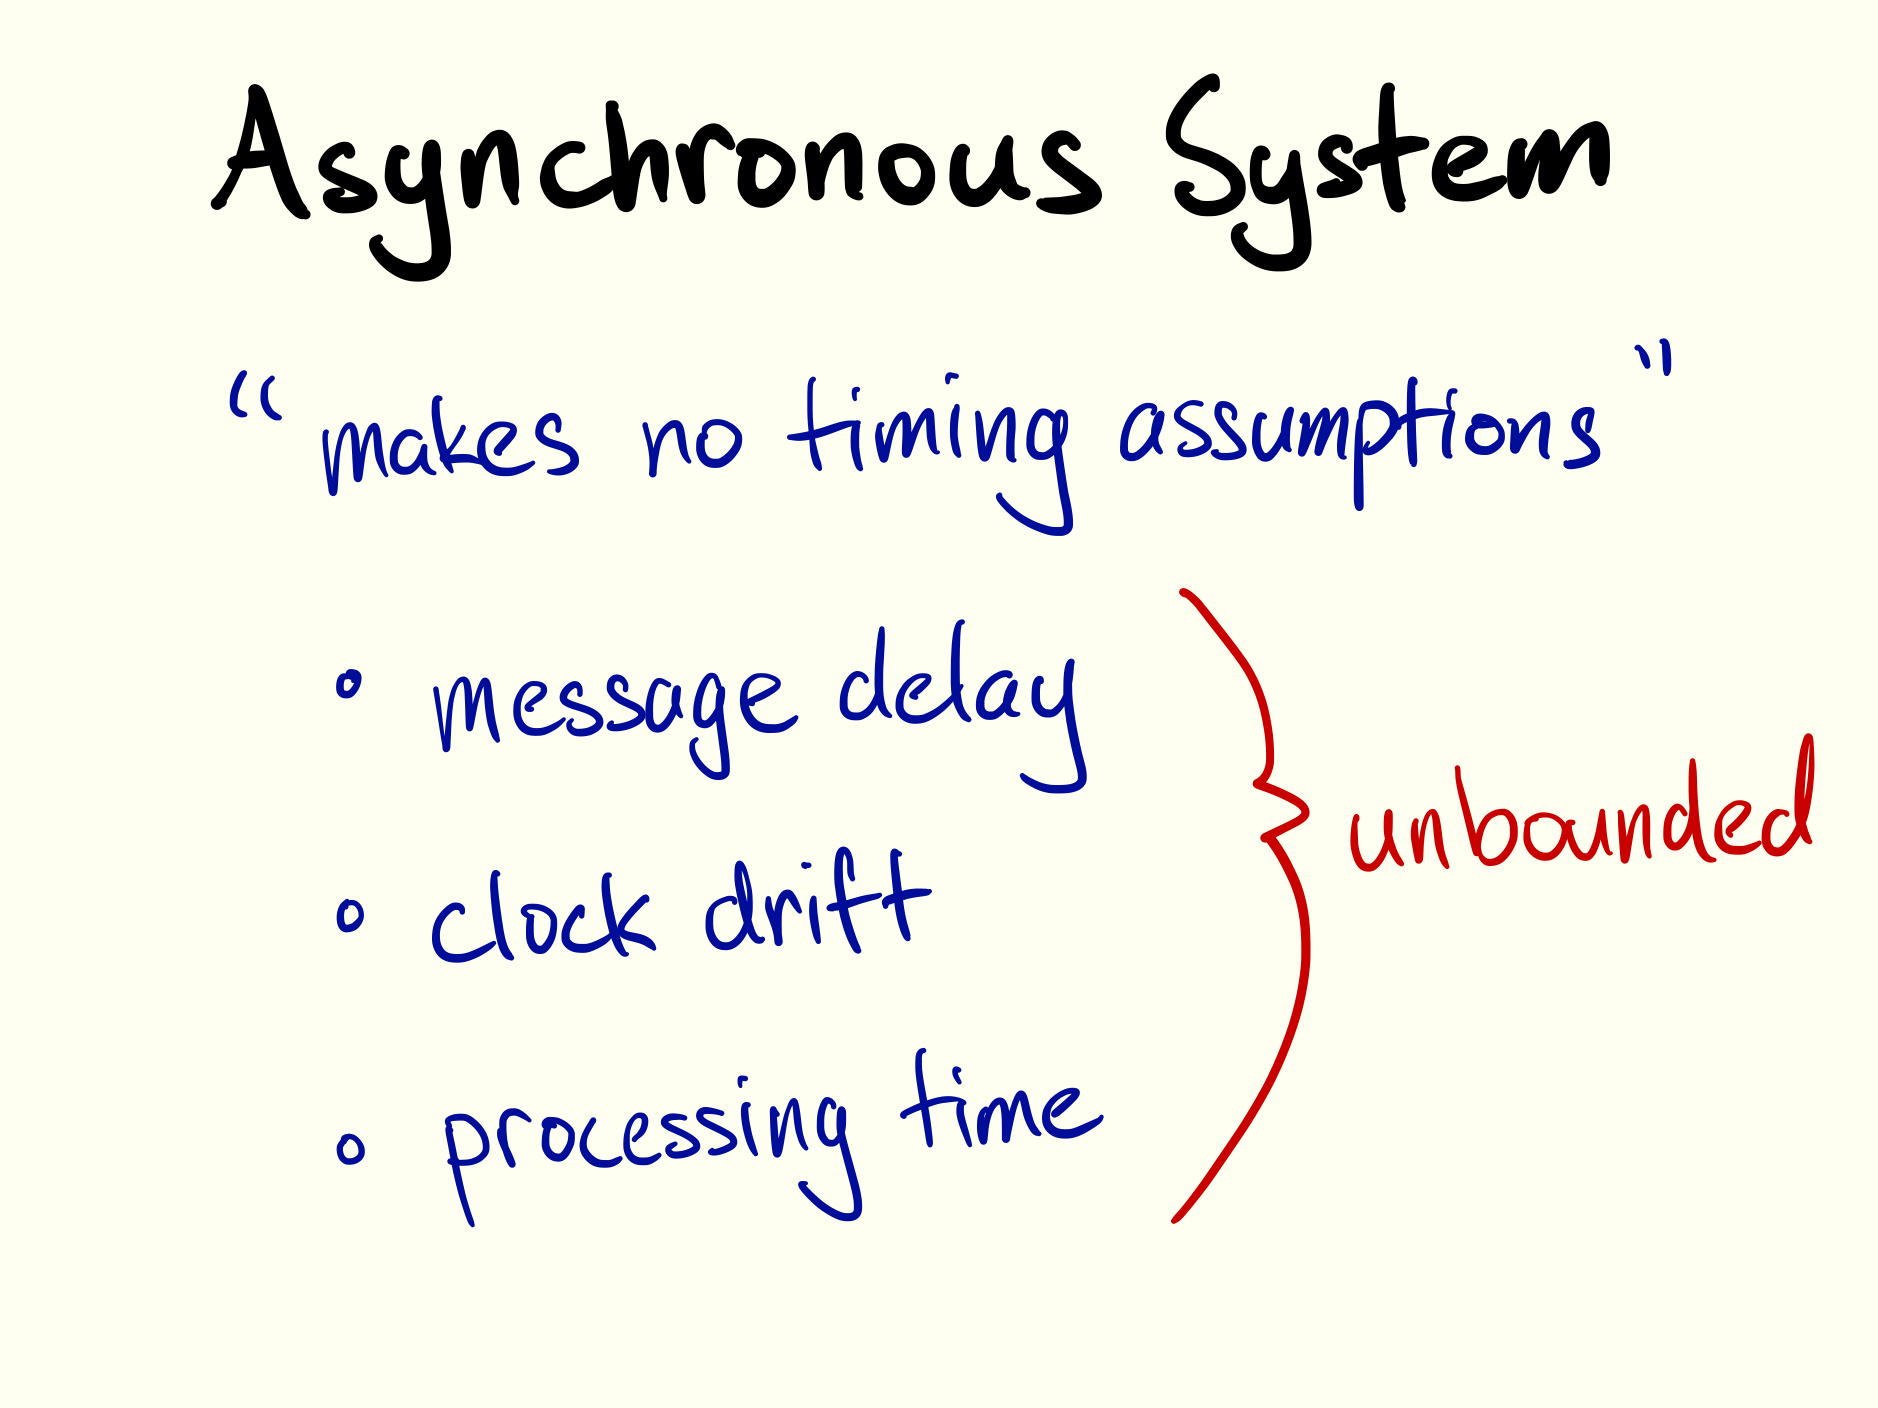 Asynchronous System
“makes no timing assumptions”
• message delay
• clock drift
• processing time
unbounded